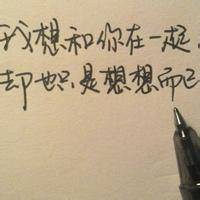 我想和你在一起.
却也只是想想而已